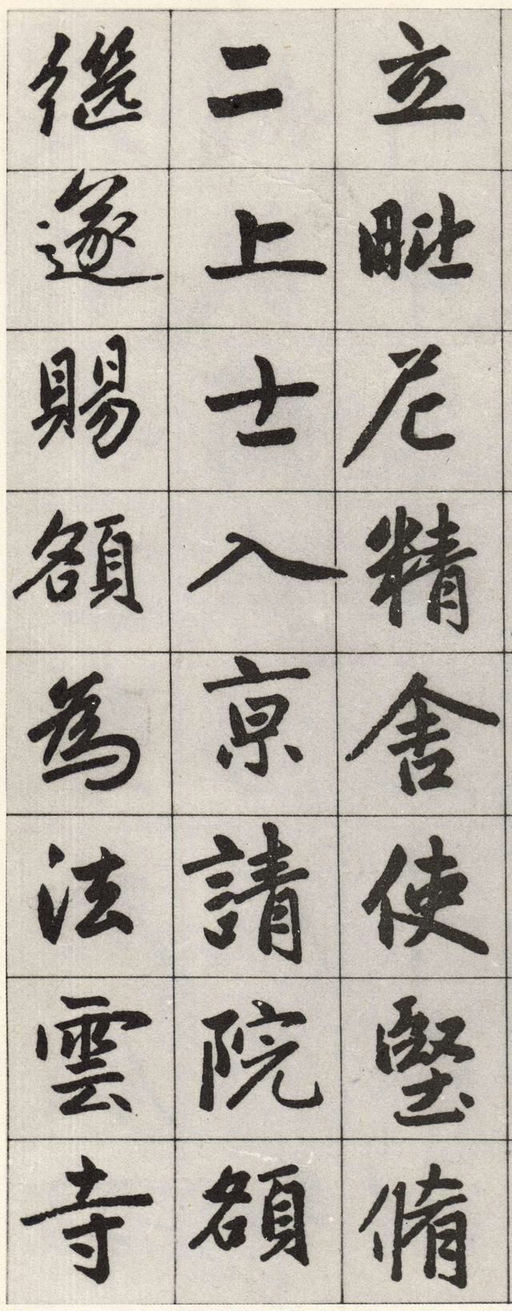 立毗尼精舍使堅脩
二上士入亰請院額
遂賜額為法雲寺